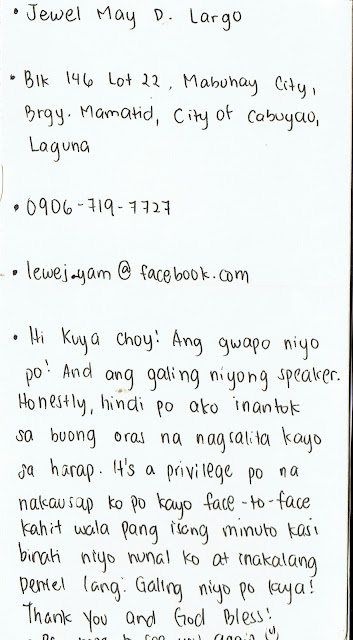 • Jewel May D. Largo
• Blk 146 Lot 22, Mabuhay City,
Brgy. Mamatid, City of Cabuyao,
Laguna
• 0906-719-7727
• lewej.yam@facebook.com
• Hi Kuya Choy! Ang gwapo niyo
po! And ang galing niyong speaker.
Honestly, hindi po ako inantok
sa buong oras na nagsalita kayo
sa harap. It's a privilege po na
nakausap ko po kayo face-to-face
kahit wala pang isang minuto kasi
binati niyo nunal ko at inakalang
pentel lang. Galing niyo po kuya!
Thank You and God Bless!